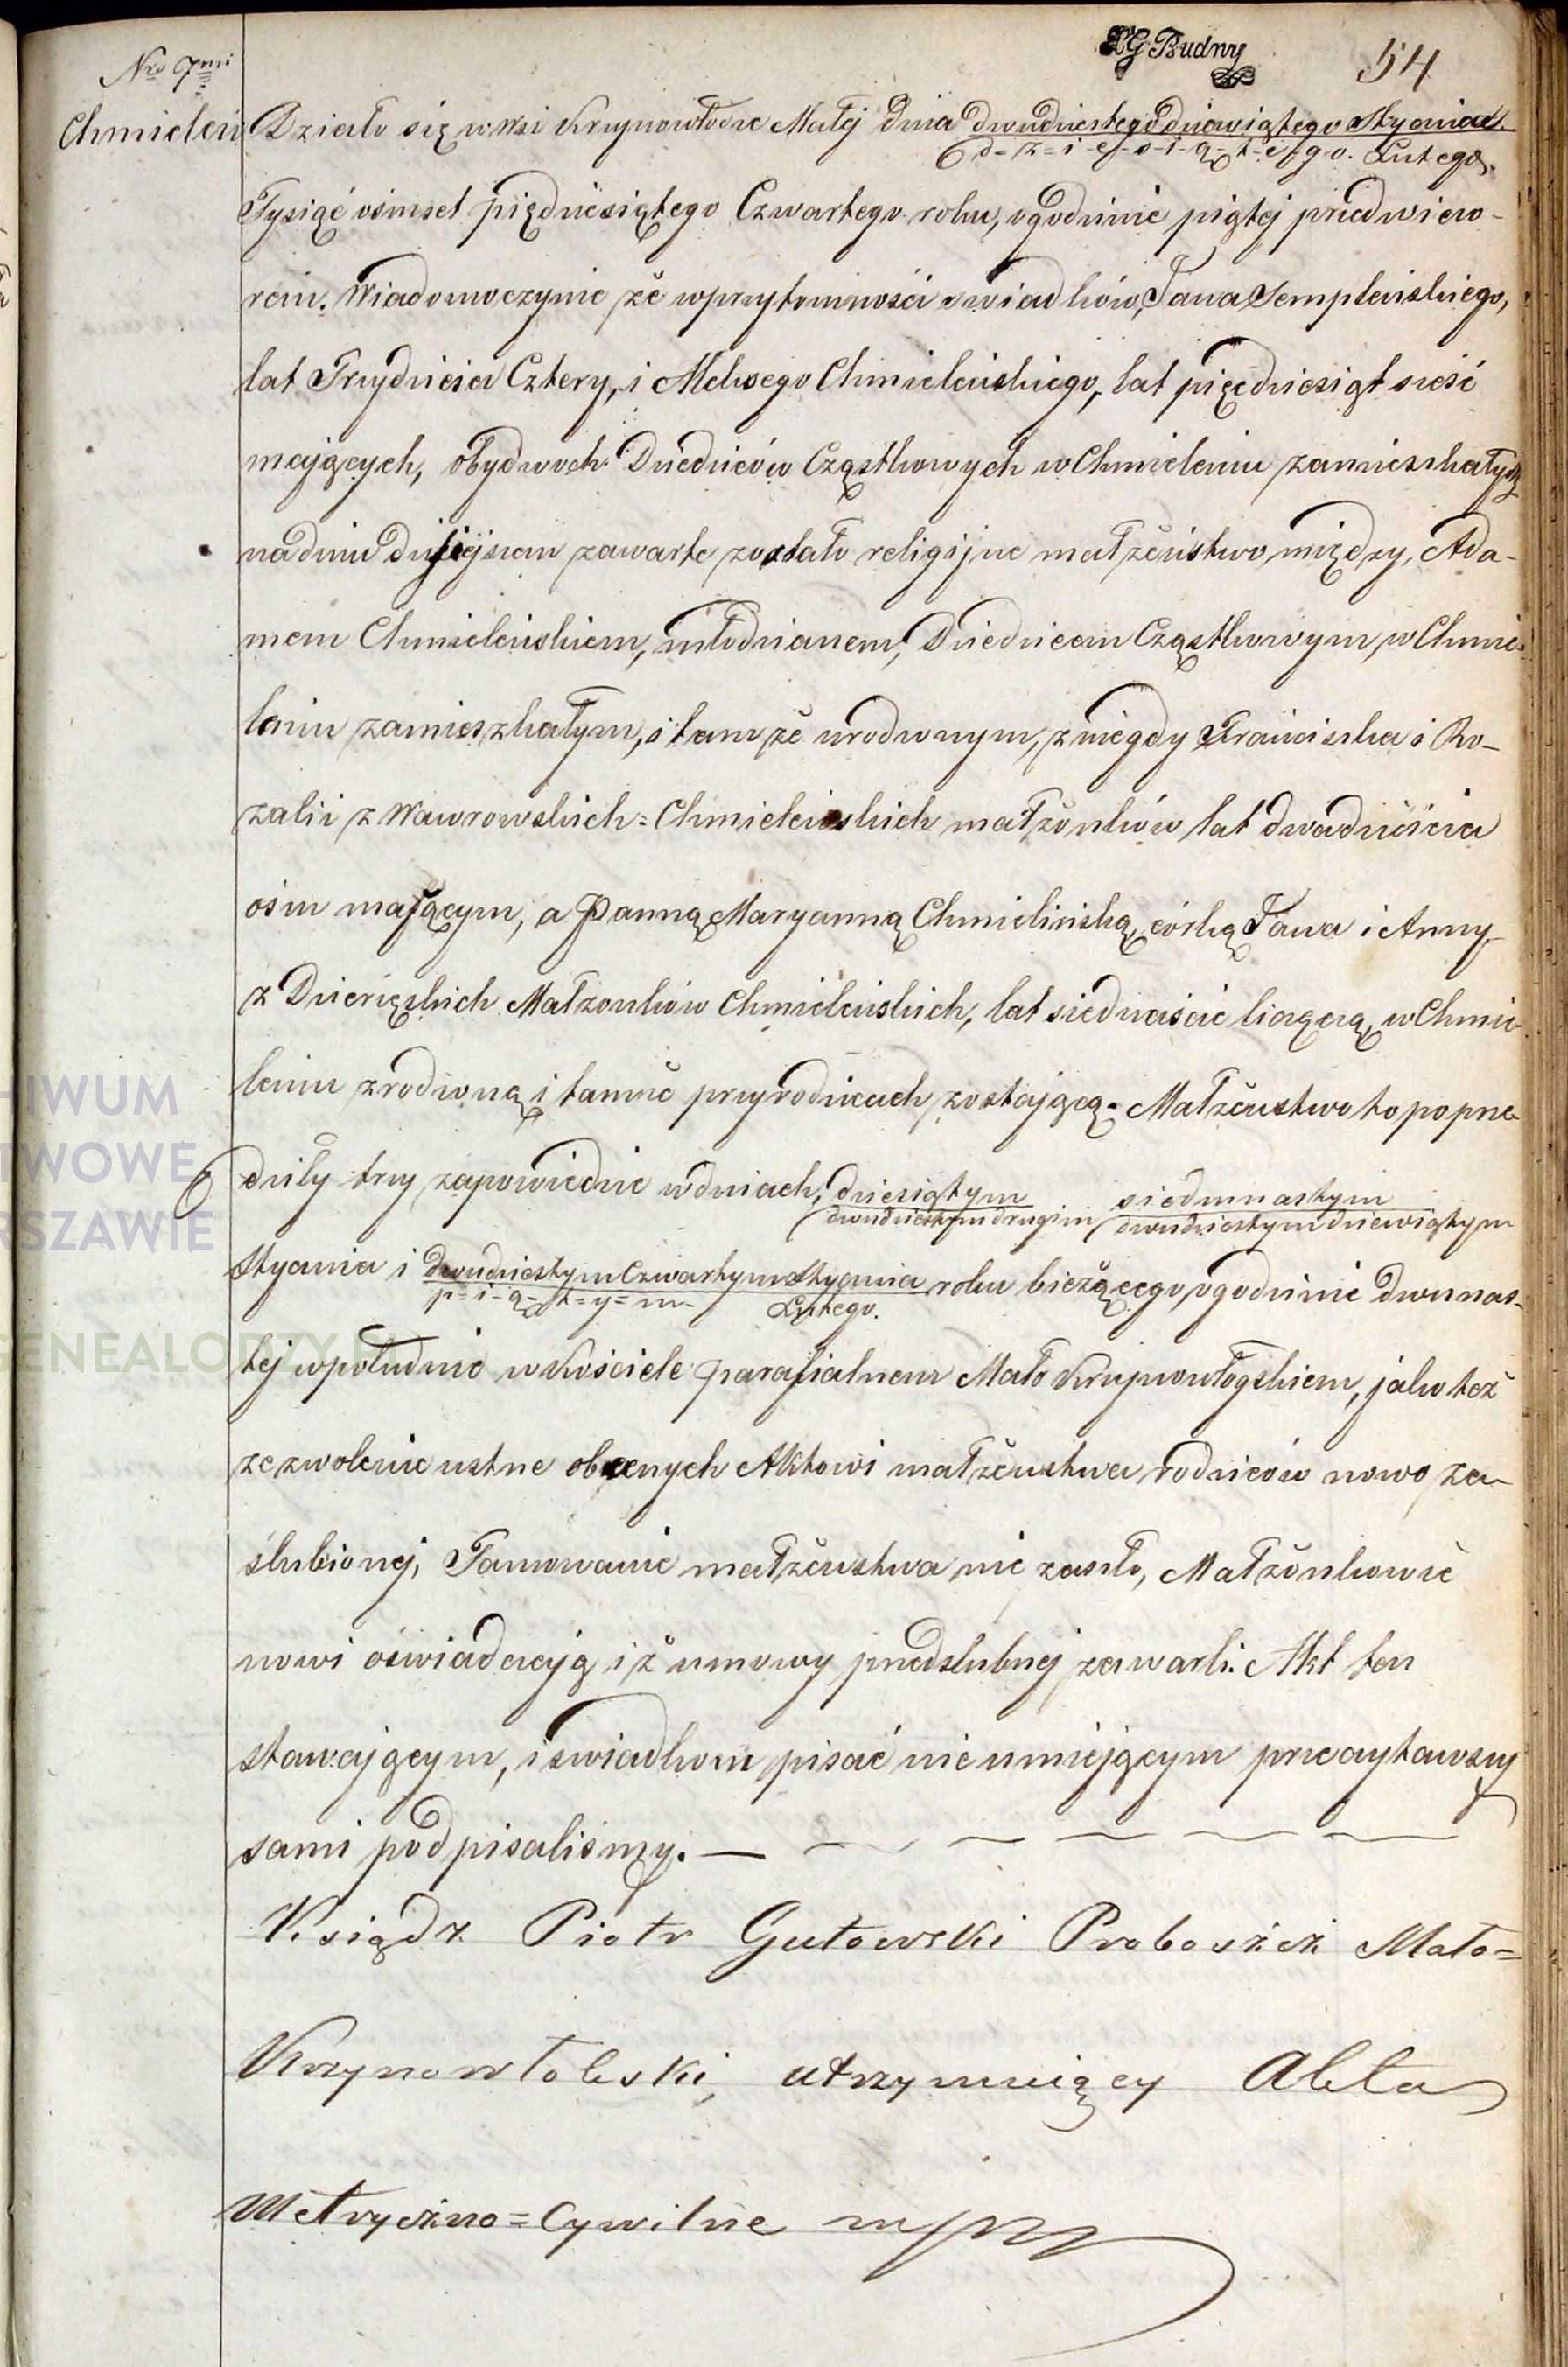 XG Budny 54
Nro 7mi
Chmieleń
Działo się w Wsi Krzynowłodze Małej dnia dwudziestego dziewiątego Stycznia
d-z-i-e-s-i-ą-t-e-g-o. Lutego.
Tysiąć ośmset piędziesiątego Czwartego roku, o godzinie piątej przedwieczo-
rem. Wiadomo czynie że w przytomności swiadków, Jana Templeńskiego,
lat Trzydzieścia Cztery, i Alekwego Chmieleńskiego, lat pięcdziesiąt sześć
mających, obydwoch Dziedziców Cząstkowych w Chmieleniu zamieszkałych
na dniu dzisiejszem zawarte zostało religijne małżeństwo między, Ada-
mem Chmieleńskiem, młodzianem, Dziedzicem Cząstkowym, w Chmie-
leniu zamieszkałym, i tam że urodzonym, z niegdy Franciszka i Ro-
zalii z Wawrowskich = Chmieleńskich małżonków lat dwadzieścia
ośm mającym, a Panną Maryanną Chmielińską, córką Jana i Anny
z Dzierięskich Małzonków Chmieleńskich, lat siednaście liczącą, w Chmie
leniu zrodzoną i tamże przyrodzicach zostającą. Małżeństwo to poprze
dziły trzy zapowiedzie w dniach, dziesiątym siedmnastym
dwudziestym drugim dwudziestym dziewiątym
Stycznia i dwudziestym Czwartym Stycznia roku bieżącego, o godzinie dwunas-
p-i-ą-t-y-m- Lutego.
tej w południe w Kościele parafialnem Mało Krzynowłogskiem, jako też
zezwolenie ustne obecnych Aktowi małżeństwa rodziców nowo za-
ślubionej, Tamowanie małżeństwa nie zaszło, Małżonkowie
nowi oświadczają iż umowy przedslubnej zawarli. Akt ten
stawającym, i swiadkom pisać nie umiejącym przeczytawszy
sami podpisaliśmy. —
Ksiądz Piotr Gutowski Proboszcz Mało=
Krzynowłoski, utrzymuiący Akta
Metryczno = Cywilne mpp
HIWUM
TWOWE
RSZAWIE
GENEALODZY